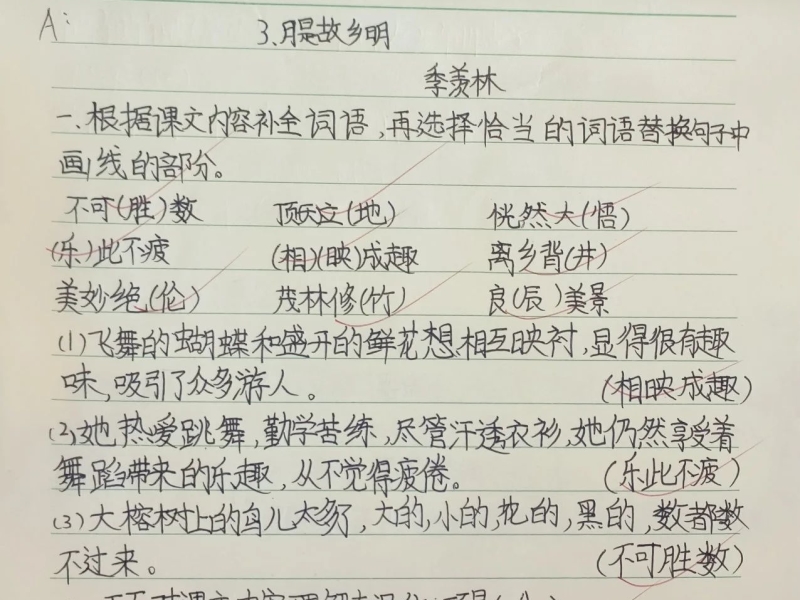 A:
3.月是故乡明
季羡林
一、根据课文内容补全词语,再选择恰当的词语替换句子中
画线的部分。
不可(胜)数 顶天立(地) 恍然大(悟)
(乐)此不疲 (相)(映)成趣 离乡背(井)
美妙绝(伦) 茂林修(竹) 良(辰)美景
(1)飞舞的蝴蝶和盛开的鲜花想相互映衬,显得很有趣
味,吸引了众多游人。 (相映成趣)
(2)她热爱跳舞,勤学苦练,尽管汗透衣衫,她仍然享受着
舞蹈带来的乐趣,从不觉得疲倦。 (乐此不疲)
(3)大榕树上的鸟儿太多了,大的,小的,花的,黑的,数都数
不过来。 (不可胜数)